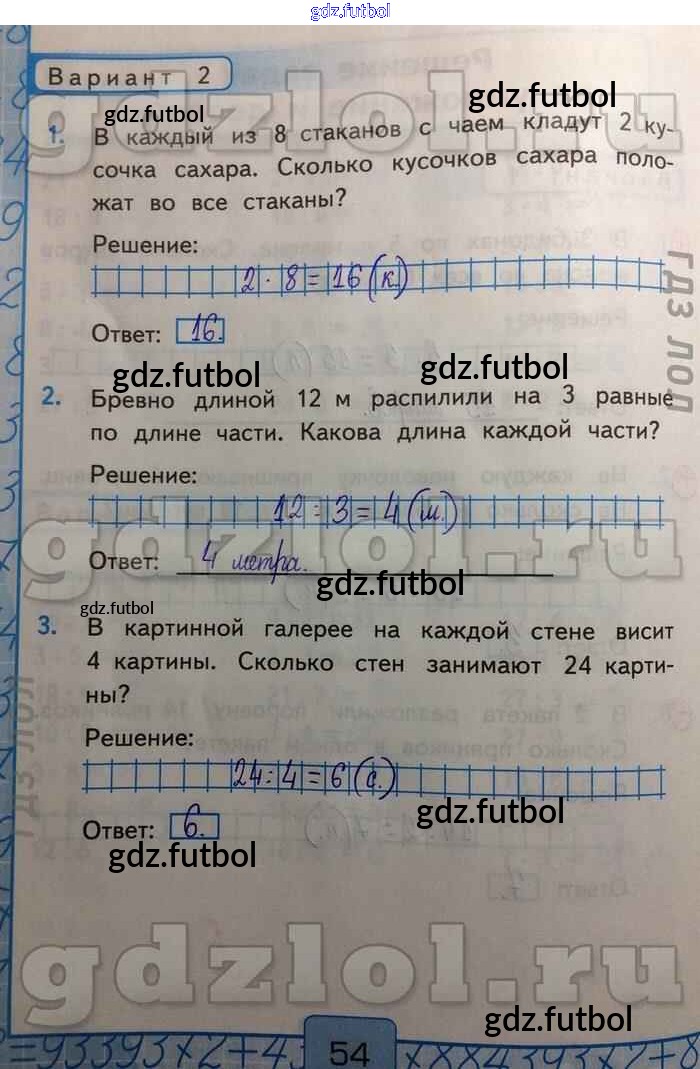 gdz.futbol
Вариант 2
gdzlol.ru
gdz.futbol
gdz.futbol
1. В каждый из 8 стаканов с чаем кладут 2 ку-
сочка сахара. Сколько кусочков сахара поло-
жат во все стаканы?
Решение:
2 · 8 = 16 (к.)
ГДЗ ЛОЛ
Ответ: 16.
gdz.futbol
gdz.futbol
2. Бревно длиной 12 м распилили на 3 равные
по длине части. Какова длина каждой части?
Решение:
12 : 3 = 4 (м.)
gdzlol.ru
Ответ: 4 метра.
gdz.futbol
gdz.futbol
3. В картинной галерее на каждой стене висит
4 картины. Сколько стен занимают 24 карти-
ны?
ГДЗ ЛОЛ
Решение:
24 : 4 = 6 (с.)
gdz.futbol
Ответ: 6.
gdz.futbol
gdzlol.ru
gdz.futbol
=93393×2+4
54
×884393×2+8